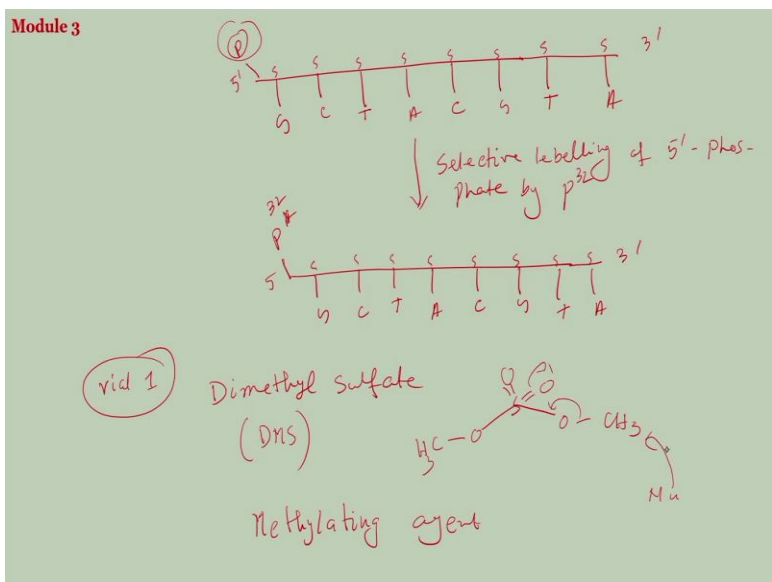 Module 3
P
5' S S S S S S S S 3'
G C T A C G T A
Selective labelling of 5'-phos-
phate by P32
32
P*
5 S S S S S S S S 3'
G C T A C G T A
vial 1 Dimethyl Sulfate
(DMS)
O O
S
H3C-O O-CH3
Nu
Methylating agent